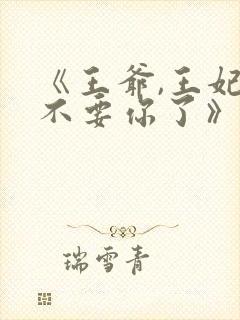 《王爷,王妃
不要你了》
瑞雪青